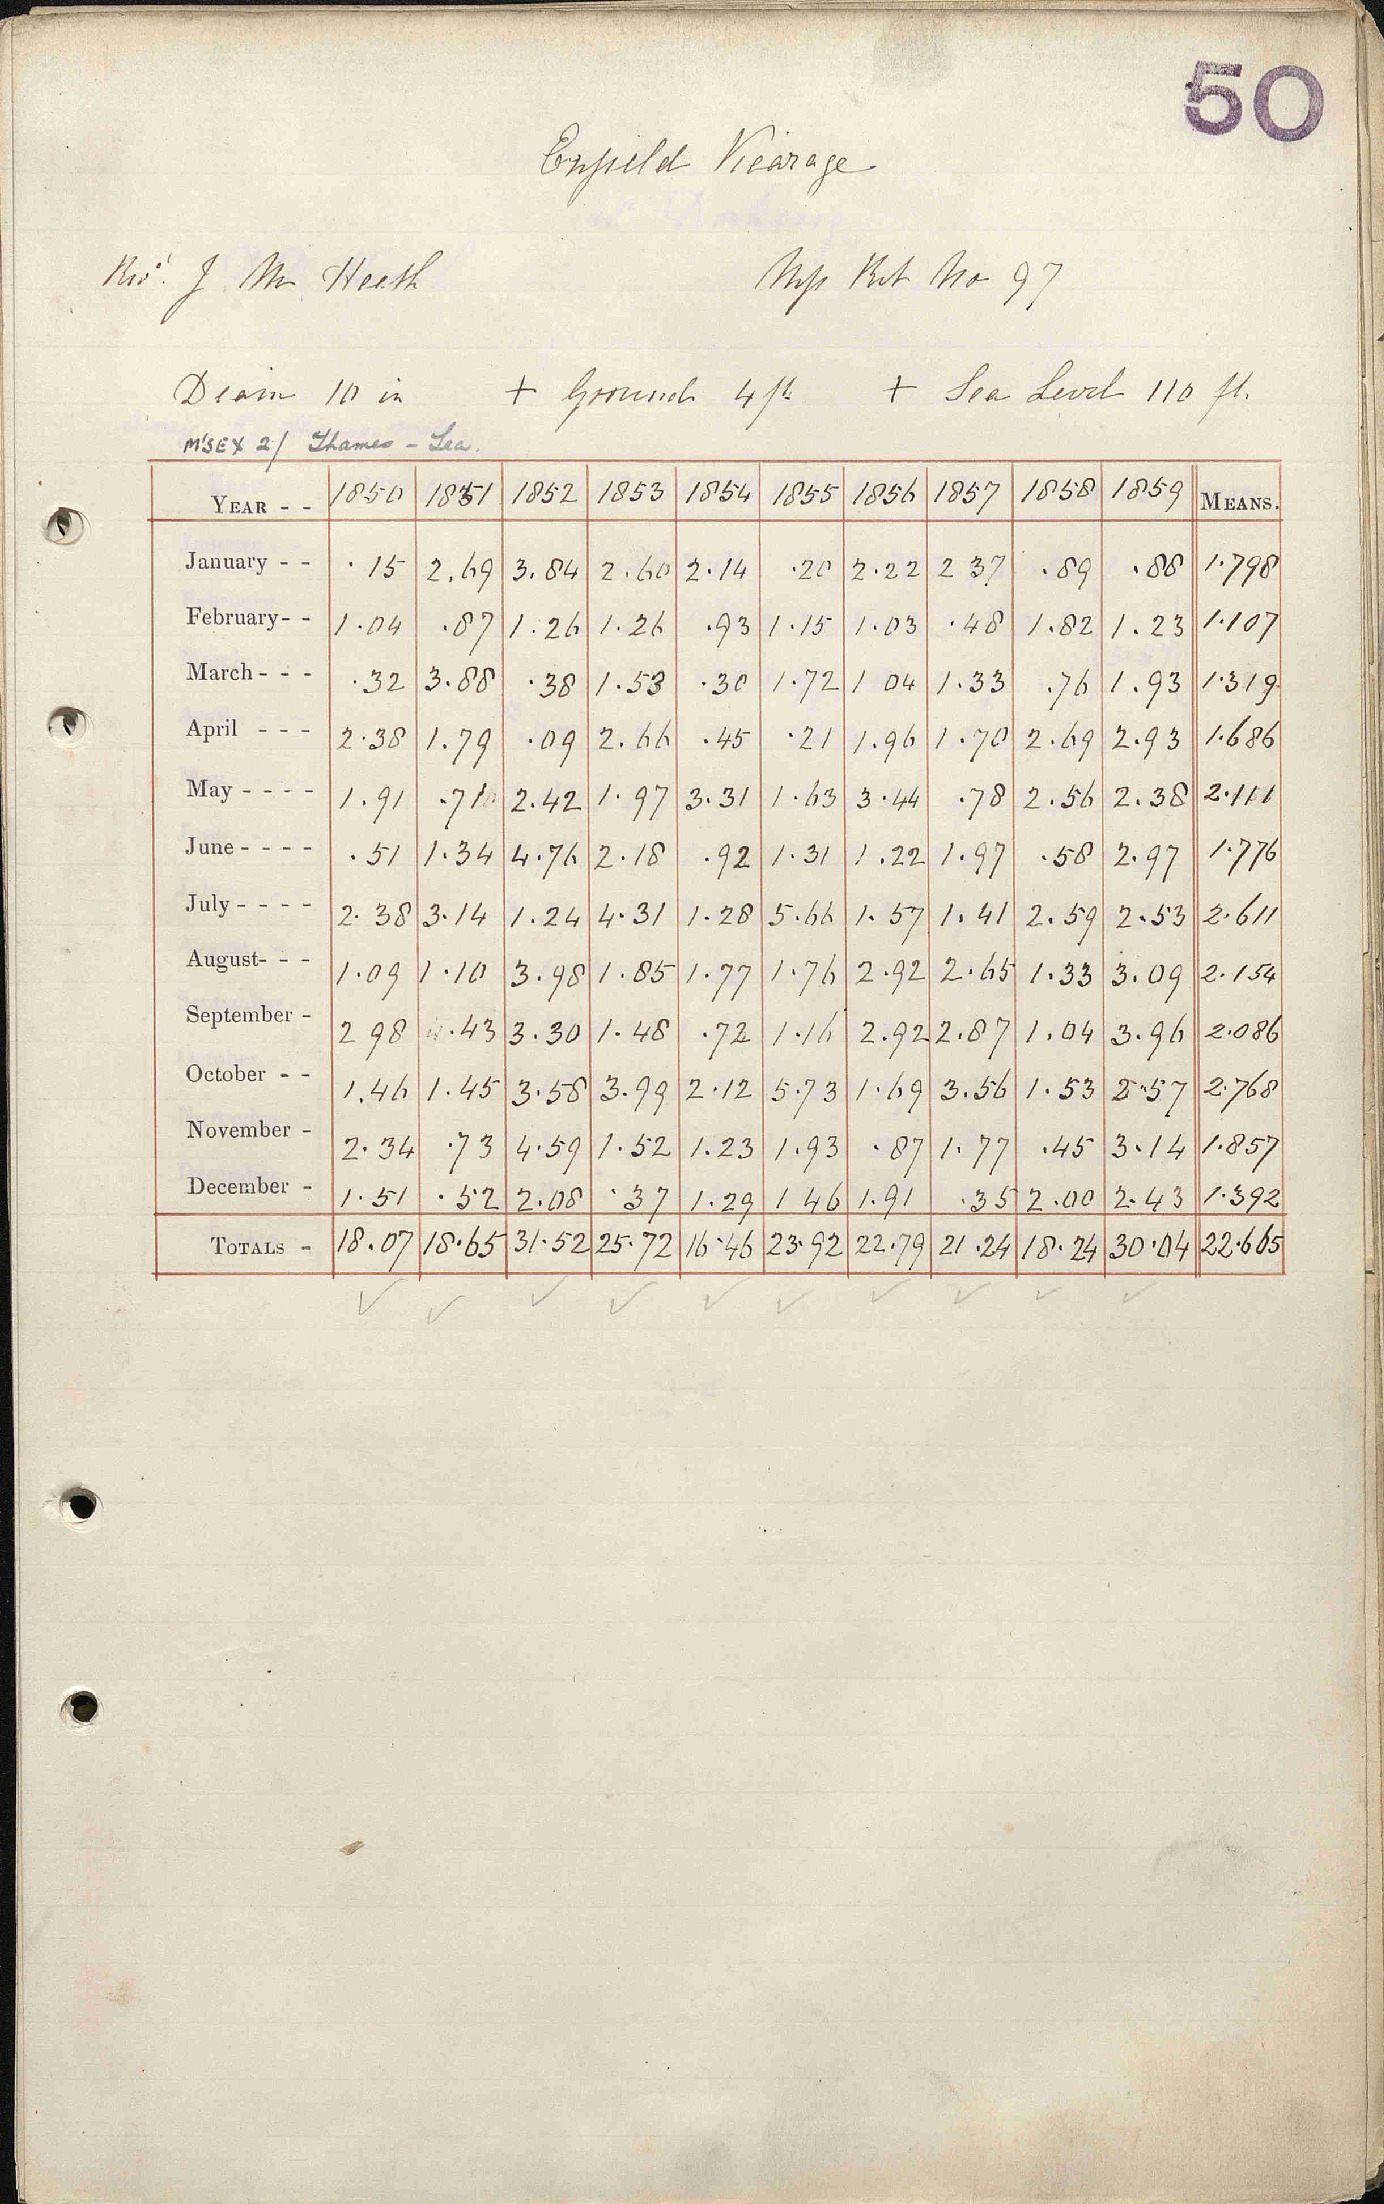 50
Enfield Vicarage
Revd. J M Heath Mss Ret No 97
Diam 10 in + Ground 4 ft + Sea Level 110 ft.
M'SEX 2/ Thames - Lea.
YEAR - - 1850 1851 1852 1853 1854 1855 1856 1857 1858 1859 MEANS.
January - - .15 2.69 3.84 2.60 2.14 .20 2.22 2 37 .89 .88 1.798
February - - 1.04 .87 1.26 1.26 .93 1.15 1.03 .48 1.82 1.23 1.107
March - - - .32 3.88 .38 1.53 .30 1.72 1 04 1.33 .76 1.93 1.319
April - - - 2.38 1.79 .09 2.66 .45 .21 1.96 1.70 2.69 2.93 1.686
May - - - - 1.91 .71 2.42 1.97 3.31 1.63 3.44 .78 2.56 2.38 2.111
June - - - - .51 1.34 4.76 2.18 .92 1.31 1.22 1.97 .58 2.97 1.776
July - - - - 2.38 3.14 1.24 4.31 1.28 5.66 1.57 1.41 2.59 2.53 2.611
August - - - 1.09 1.10 3.98 1.85 1.77 1.76 2.92 2.65 1.33 3.09 2.154
September - 2 98 .43 3.30 1.48 .72 1.16 2.92 2.87 1.04 3.96 2.086
October - - 1.46 1.45 3.58 3.99 2.12 5.73 1.69 3.56 1.53 2.57 2.768
November - 2.34 .73 4.59 1.52 1.23 1.93 .87 1.77 .45 3.14 1.857
December - 1.51 .52 2.08 .37 1.29 1 46 1.91 .35 2.00 2.43 1.392
TOTALS - 18.07 18.65 31.52 25.72 16.46 23.92 22.79 21.24 18.24 30.04 22.665